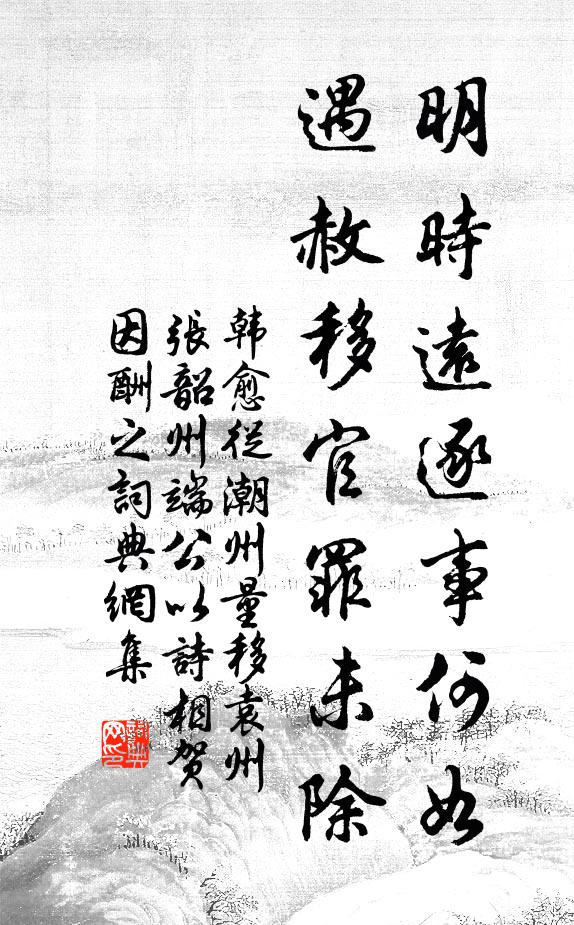 明時遠逐事何如
遇赦移官罪未除
韩愈從潮州量移袁州
張韶州端公以詩相贺
因酬之詞典網集